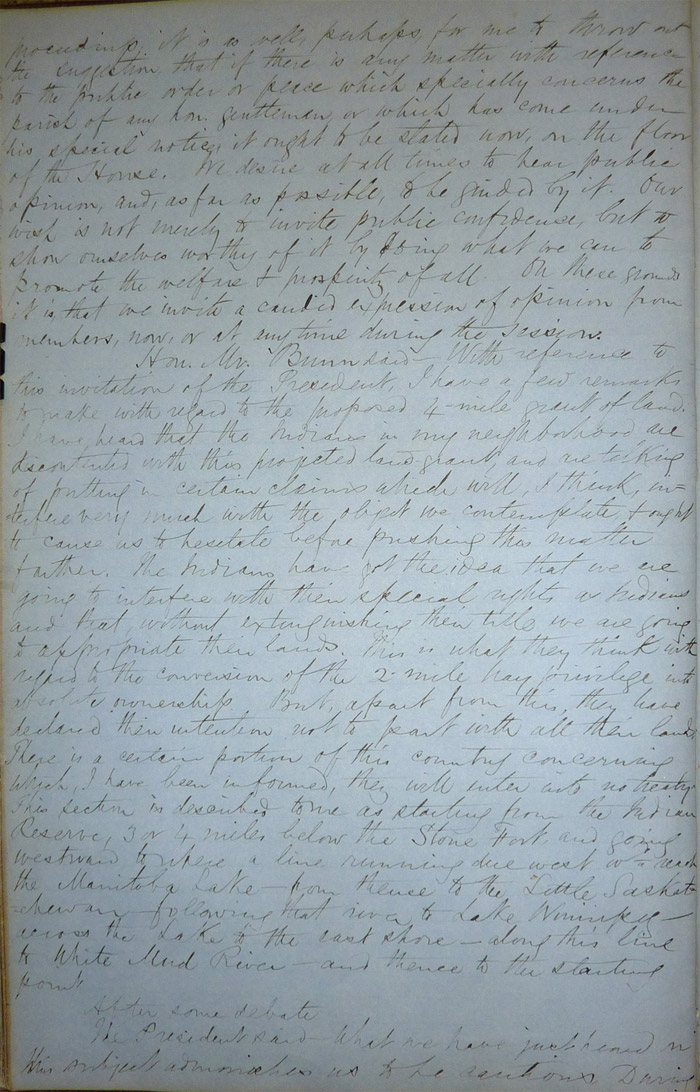 proceedings, it is as well perhaps for me to throw out
the suggestion that if there is any matter with reference
to the public order or peace which specially concerns the
parish of any hon. gentleman, or which has come under
his special notice, it ought to be stated now, on the floor
of the House. We desire at all times to hear public
opinion, and, as far as possible, to be guided by it. Our
wish is not merely to invite public confidence, but to
show ourselves worthy of it by doing what we can to
promote the welfare & prosperity of all. On these grounds
it is that we invite a candid expression of opinion from
members, now, or at any time during the Session.
Hon. Mr. Bunn said – With reference to
this invitation of the President, I have a few remarks
to make with regard to the proposed 4-mile grant of land.
I have heard that the Indians in my neighborhood are
discontented with this projected land grant, and are talking
of putting in certain claims which will, I think, in-
terfere very much with the object we contemplate & ought
to cause us to hesitate before pushing this matter
farther. The Indians have got the idea that we are
going to interfere with their special rights as Indians
and that, without extinguishing their title, we are going
to appropriate their lands. This is what they think with
regard to the conversion of the 2-mile hay privilege into
absolute ownership. But, apart from this, they have
declared their intention not to part with all their lands.
There is a certain portion of this country concerning
which, I have been informed, they will enter into no treaty.
This section is described to me as starting from the Indian
Reserve, 3 or 4 miles below the Stone Fort, and going
westward to where a line running due west wd reach
the Manitoba Lake – from thence to the Little Saskat-
chewan – following that river to Lake Winnipeg –
across the Lake to the east shore – along this line
to White Mud River – and thence to the starting
point.
After some debate
The President said – What we have just heard on
this subject admonishes us to be cautious. During